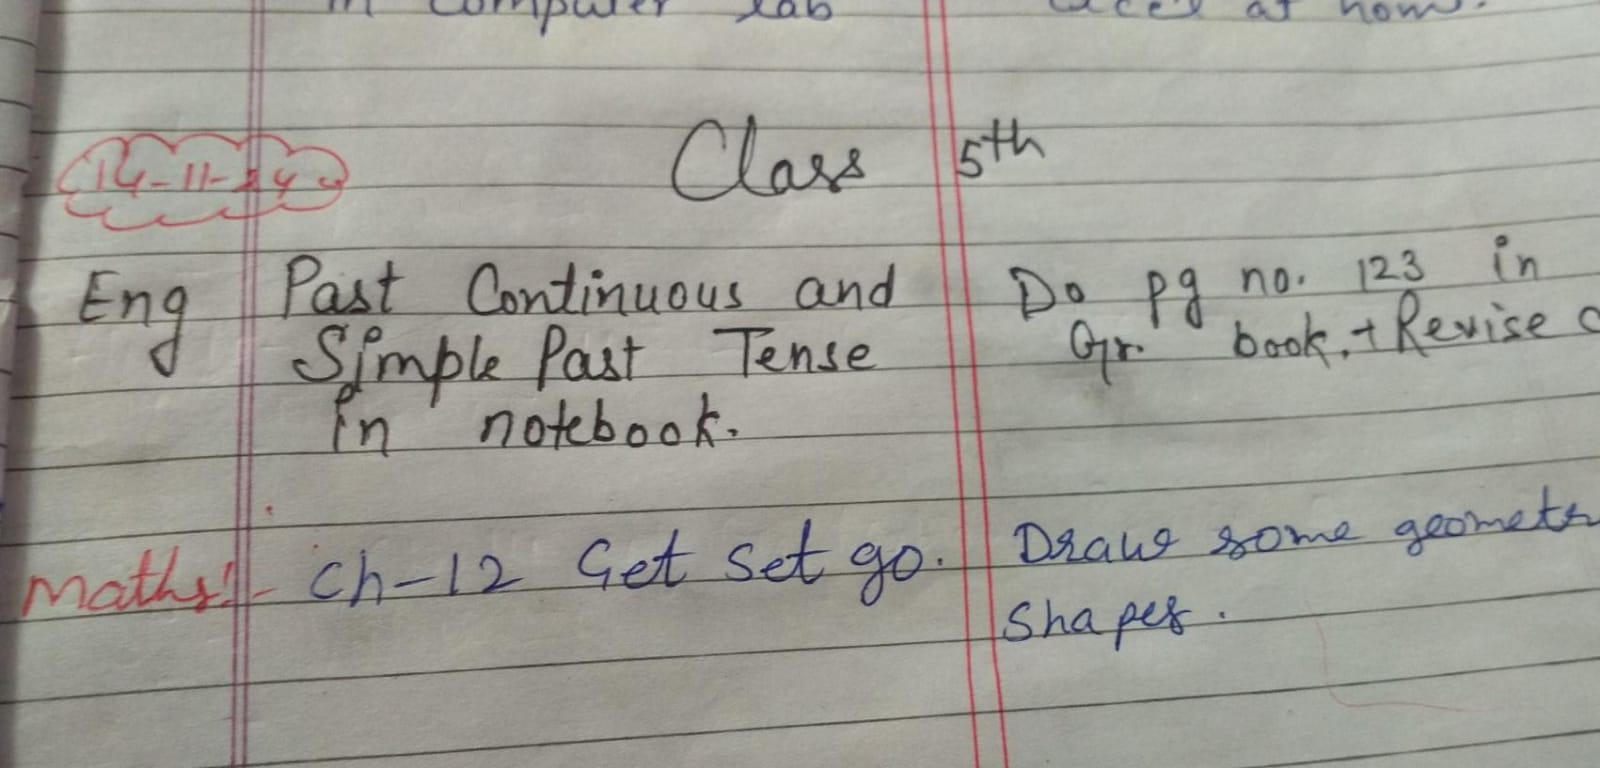 in computer lab at home.
Class 5th
14-11-24
Eng Past Continuous and Do pg no. 123 in
Simple Past Tense Gr. book. + Revise
in notebook.
Maths:- Ch-12 Get set go. Draw some geometr
shapes.